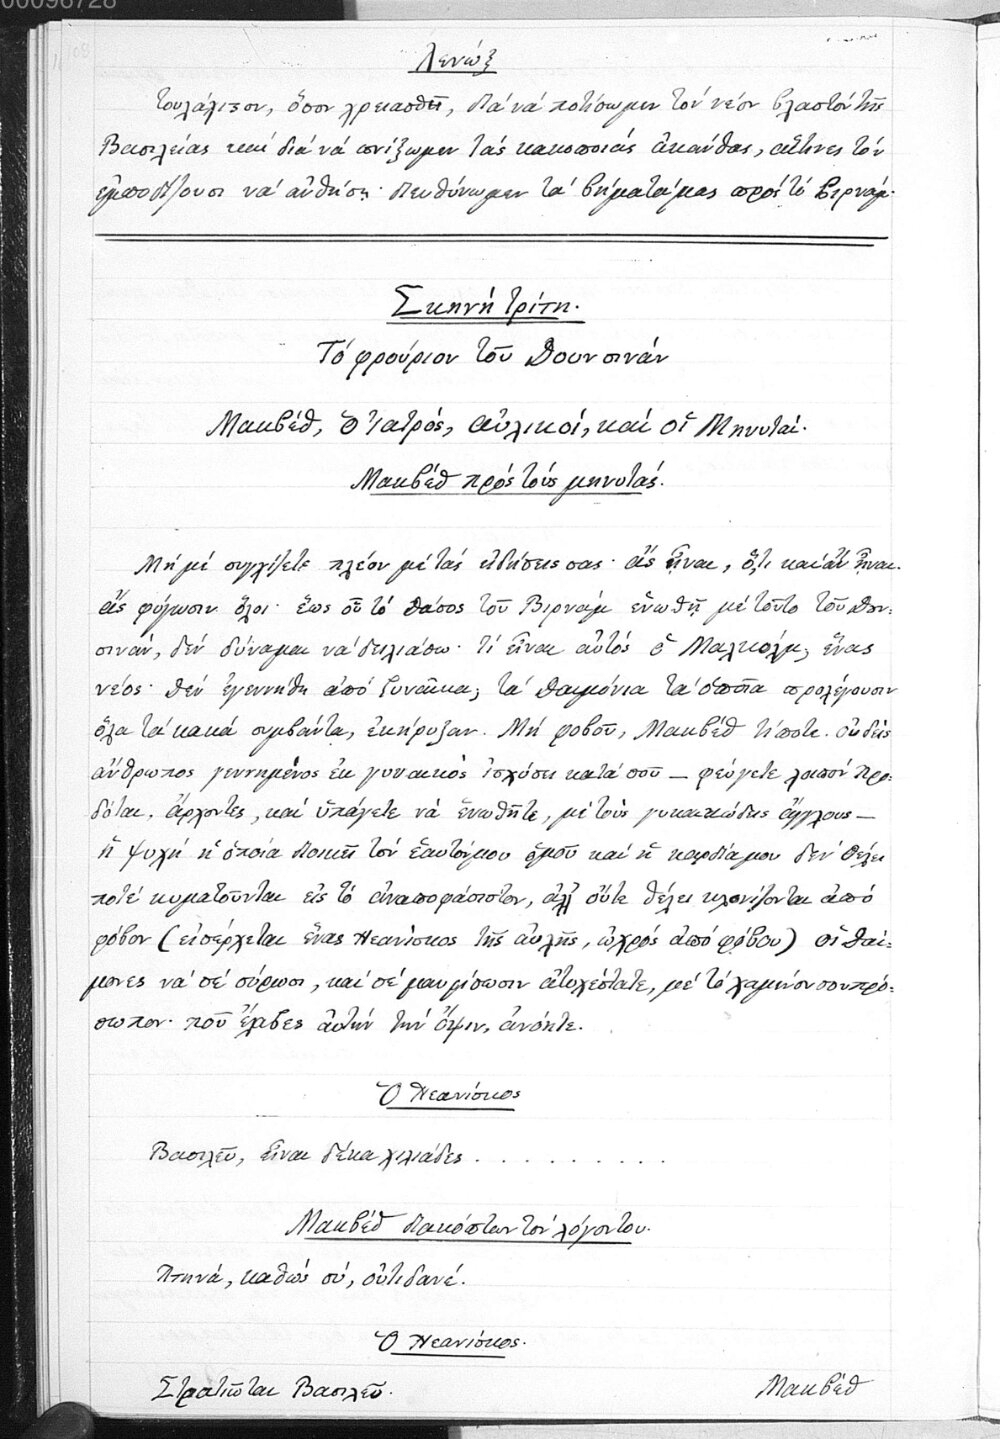 00096728
Λενώξ
τουλάχιστον, ὅσον χρειασθῇ, διά νά ποτίσωμεν τόν νέον βλαστόν τῆς
Βασιλείας καί διά νά πνίξωμεν τάς κακοποιάς ἀκάνθας, αἵτινες τόν
ἐμποδίζουσι νά ἀνθήσῃ· διευθύνωμεν τά βήματά μας πρός τό Βιρνάμ.
Σκηνή τρίτη.
Τό φρούριον τοῦ Δουνσινάν
Μακβέθ, ὁ ἰατρός, αὐλικοί, καί οἱ Μηνυταί.
Μακβέθ πρός τούς μηνυτάς.
Μή μέ συγχίζετε πλέον μέ τάς εἰδήσεις σας· ἄς ἦναι, ὅ,τι καί ἄν ἦναι.
ἄς φύγωσιν ὅλοι· ἕως οὗ τό δάσος τοῦ Βιρνάμ ἑνωθῇ μέ τοῦτο τοῦ Δουν-
σινάν, δέν δύναμαι νά δειλιάσω· τί εἶναι αὐτός ὁ Μαλκόλμ; ἕνας
νέος· δέν ἐγεννήθη ἀπό γυναῖκα; τά δαιμόνια τά ὁποῖα προλέγουσιν
ὅλα τά κακά συμβάντα, ἐκήρυξαν. Μή φοβοῦ, Μακβέθ τίποτε. οὐδείς
ἄνθρωπος γεννημένος ἐκ γυναικός ἰσχύσει κατά σοῦ — φεύγετε λοιπόν προ-
δόται, ἄρχοντες, καί ὑπάγετε νά ἑνωθῆτε, μέ τούς γυναικώδεις ἄγγλους —
ἡ ψυχή ἡ ὁποία διοικεῖ τόν ἑαυτόν μου ὁμοῦ καί ἡ καρδία μου δέν θέλει
ποτέ κυματοῦνται εἰς τό ἀναποφάσιστον, ἀλλ' οὔτε θέλει κλονίζονται ἀπό
φόβον (εἰσέρχεται ἕνας νεανίσκος τῆς αὐλῆς, ὠχρός ἀπό φόβου) οἱ δαί-
μονες νά σέ σύρωσι, καί σέ μαυρίσωσιν ἀτυχέστατε, μέ τό χαμένον σου πρό-
σωπον· ποῦ ἔλαβες αὐτήν τήν ὄψιν, ἀνόητε.
Ὁ Νεανίσκος
Βασιλεῦ, εἶναι δέκα χιλιάδες . . . . . . . . . .
Μακβέθ διακόπτων τόν λόγον του.
Πτηνά, καθώς σύ, οὐτιδανέ.
Ὁ Νεανίσκος.
Στρατιῶται Βασιλεῦ.
Μακβέθ